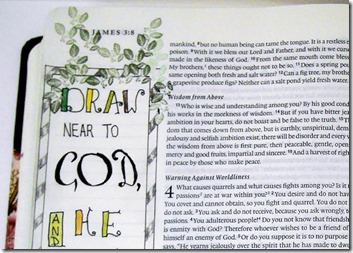 JAMES 3:8
DRAW
NEAR TO
GOD,
AND HE
mankind, ⁸but no human being can tame the tongue. It is a restless e
poison. ⁹With it we bless our Lord and Father, and with it we curse
made in the likeness of God. ¹⁰From the same mouth come blessing
My brothers, these things ought not to be so. ¹¹Does a spring pou
same opening both fresh and salt water? ¹²Can a fig tree, my brothe
a grapevine produce figs? Neither can a salt pond yield fresh water.
Wisdom from Above
¹³Who is wise and understanding among you? By his good cond
his works in the meekness of wisdom. ¹⁴But if you have bitter jea
ambition in your hearts, do not boast and be false to the truth. ¹⁵T
dom that comes down from above, but is earthly, unspiritual, dem
jealousy and selfish ambition exist, there will be disorder and every v
the wisdom from above is first pure, then peaceable, gentle, open
mercy and good fruits, impartial and sincere. ¹⁸And a harvest of righ
in peace by those who make peace.
Warning Against Worldliness
4 What causes quarrels and what causes fights among you? Is it
passions are at war within you? ²You desire and do not have
You covet and cannot obtain, so you fight and quarrel. You do not
do not ask. ³You ask and do not receive, because you ask wrongly,
passions. ⁴You adulterous people! Do you not know that friendshi
is enmity with God? Therefore whoever wishes to be a friend of
himself an enemy of God. ⁵Or do you suppose it is to no purpose
says, "He yearns jealously over the spirit that he has made to dw